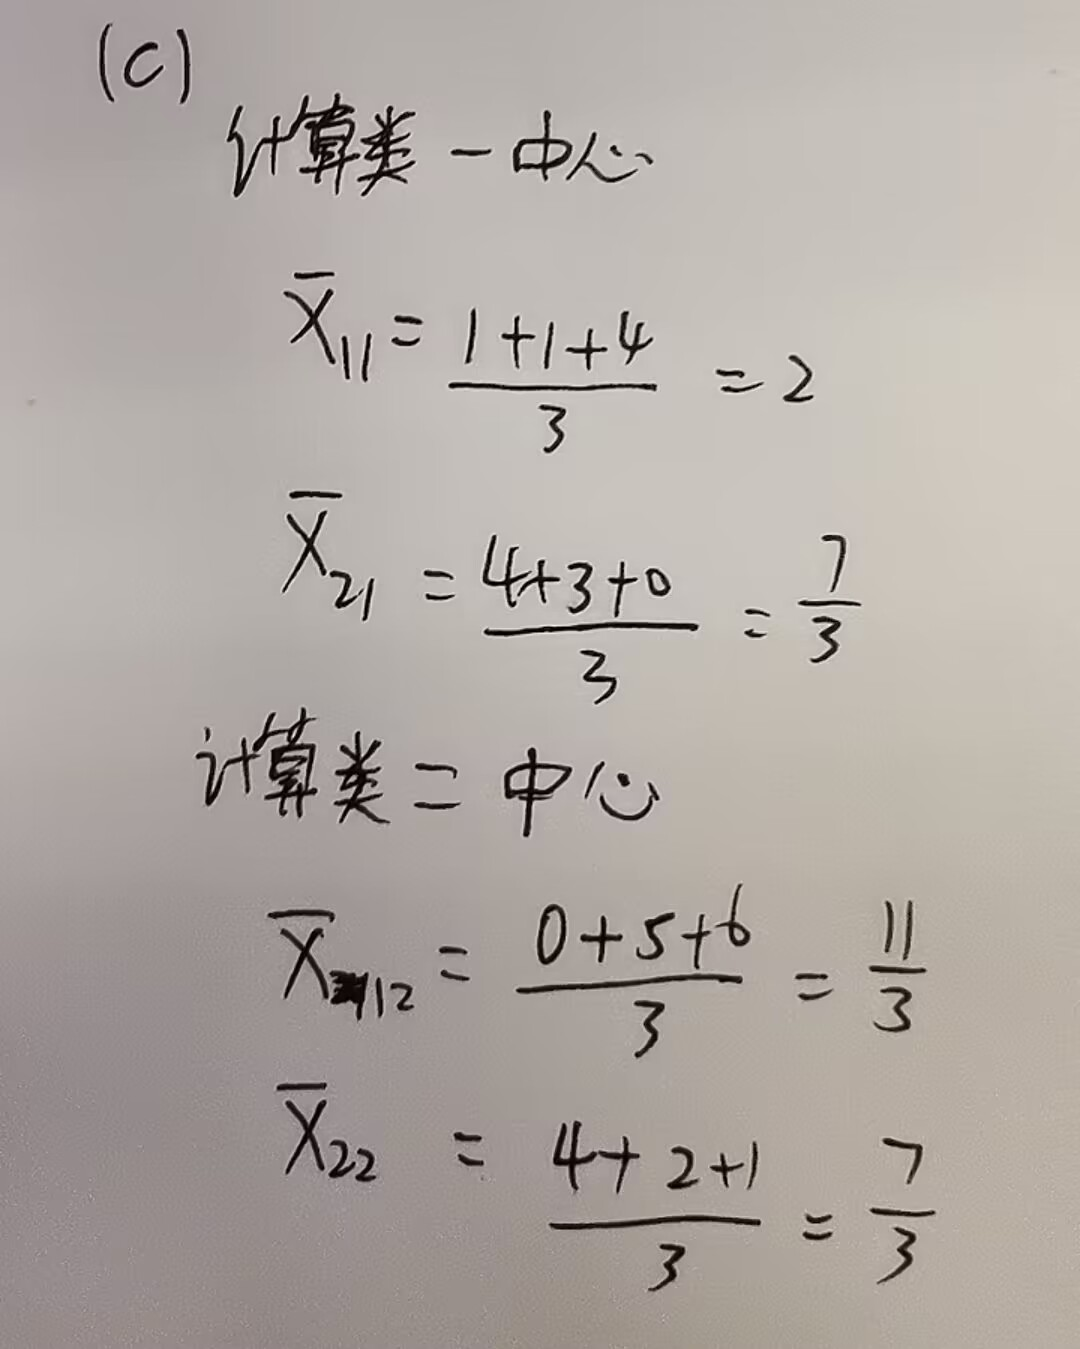 (c)
计算类一中心
X̄₁₁ = (1+1+4)/3 = 2
X̄₂₁ = (4+3+0)/3 = 7/3
计算类二中心
X̄₁₂ = (0+5+6)/3 = 11/3
X̄₂₂ = (4+2+1)/3 = 7/3